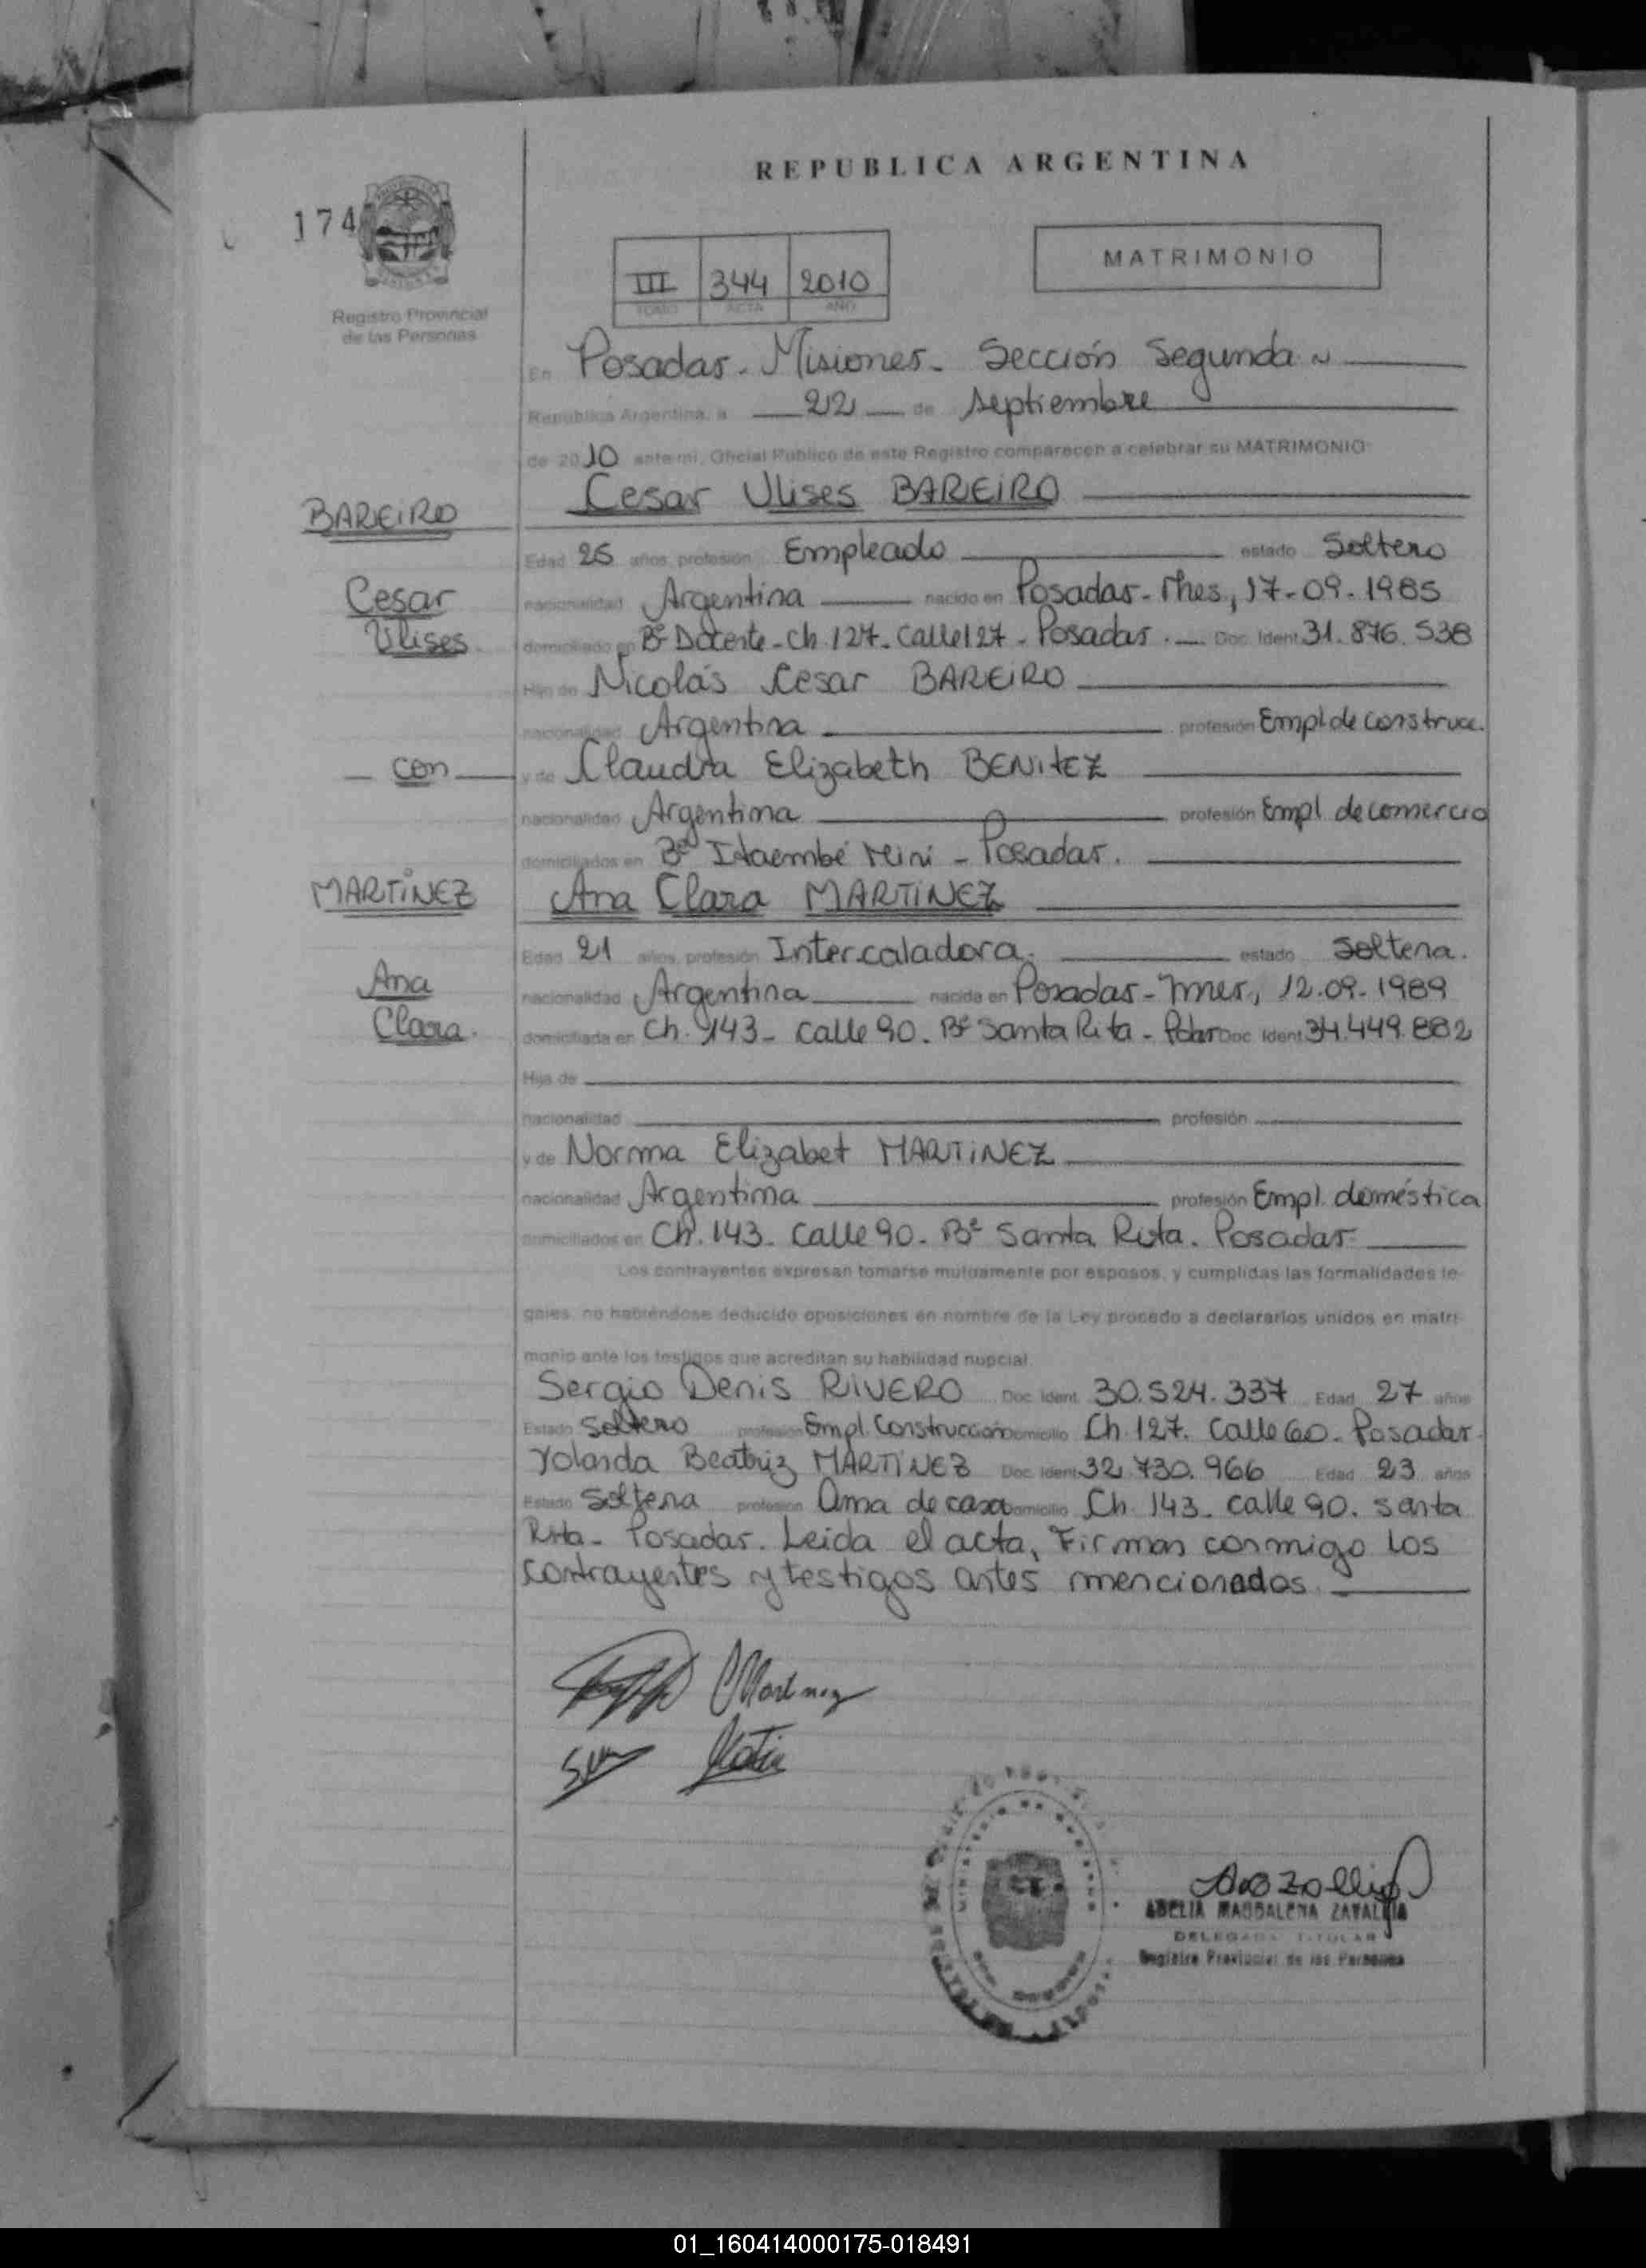 REPUBLICA ARGENTINA
174
MATRIMONIO
III 344 2010
TOMO ACTA AÑO
Registro Provincial
de las Personas
En Posadas. Misiones. Sección Segunda
Republica Argentina, a 22 de Septiembre
de 2010 ante mi, Oficial Publico de este Registro comparecen a celebrar su MATRIMONIO
Cesar Ulises BAREIRO
BAREIRO
Edad 25 años, profesión Empleado estado Soltero
Cesar
nacionalidad Argentina nacido en Posadas-Mnes, 17-09-1985
Ulises
domiciliado en Bº Docente-Ch.127-Calle127-Posadas. Doc. Ident. 31.876.538
Hijo de Nicolás Cesar BAREIRO
nacionalidad Argentina profesión Empl de construcc.
con
y de Claudia Elizabeth BENITEZ
nacionalidad Argentina profesión Empl. de comercio
domiciliados en Bº Itaembé Miní - Posadas.
MARTINEZ
Ana Clara MARTINEZ
Edad 21 años, profesión Intercaladora. estado Soltera.
Ana
nacionalidad Argentina nacida en Posadas-Mnes, 12.09.1989
Clara.
domiciliada en Ch. 143- calle 90. Bº Santa Rita - Doc. Ident. 34.449.882
Hija de
nacionalidad profesión
y de Norma Elizabet MARTINEZ
nacionalidad Argentina profesión Empl. doméstica
domiciliados en Ch. 143- calle 90. Bº Santa Rita. Posadas
Los contrayentes expresan tomarse mutuamente por esposos, y cumplidas las formalidades le-
gales, no habiéndose deducido oposiciones en nombre de la Ley procedo a declararlos unidos en matri-
monio ante los testigos que acreditan su habilidad nupcial.
Sergio Denis RIVERO Doc. Ident. 30.524.337 Edad 27 años
Estado Soltero profesión Empl. Construcción Domicilio Ch. 127. Calle 60. Posadas.
Yolanda Beatriz MARTINEZ Doc. Ident. 32.730.966 Edad 23 años
Estado Soltera profesión Ama de casa Domicilio Ch. 143- calle 90. Santa
Rita- Posadas. Leida el acta, Firman conmigo los
contrayentes y testigos antes mencionados.
Martinez
MAGDALENA
DELEGADA TITULAR
Registro Provincial de las Personas
01_160414000175-018491